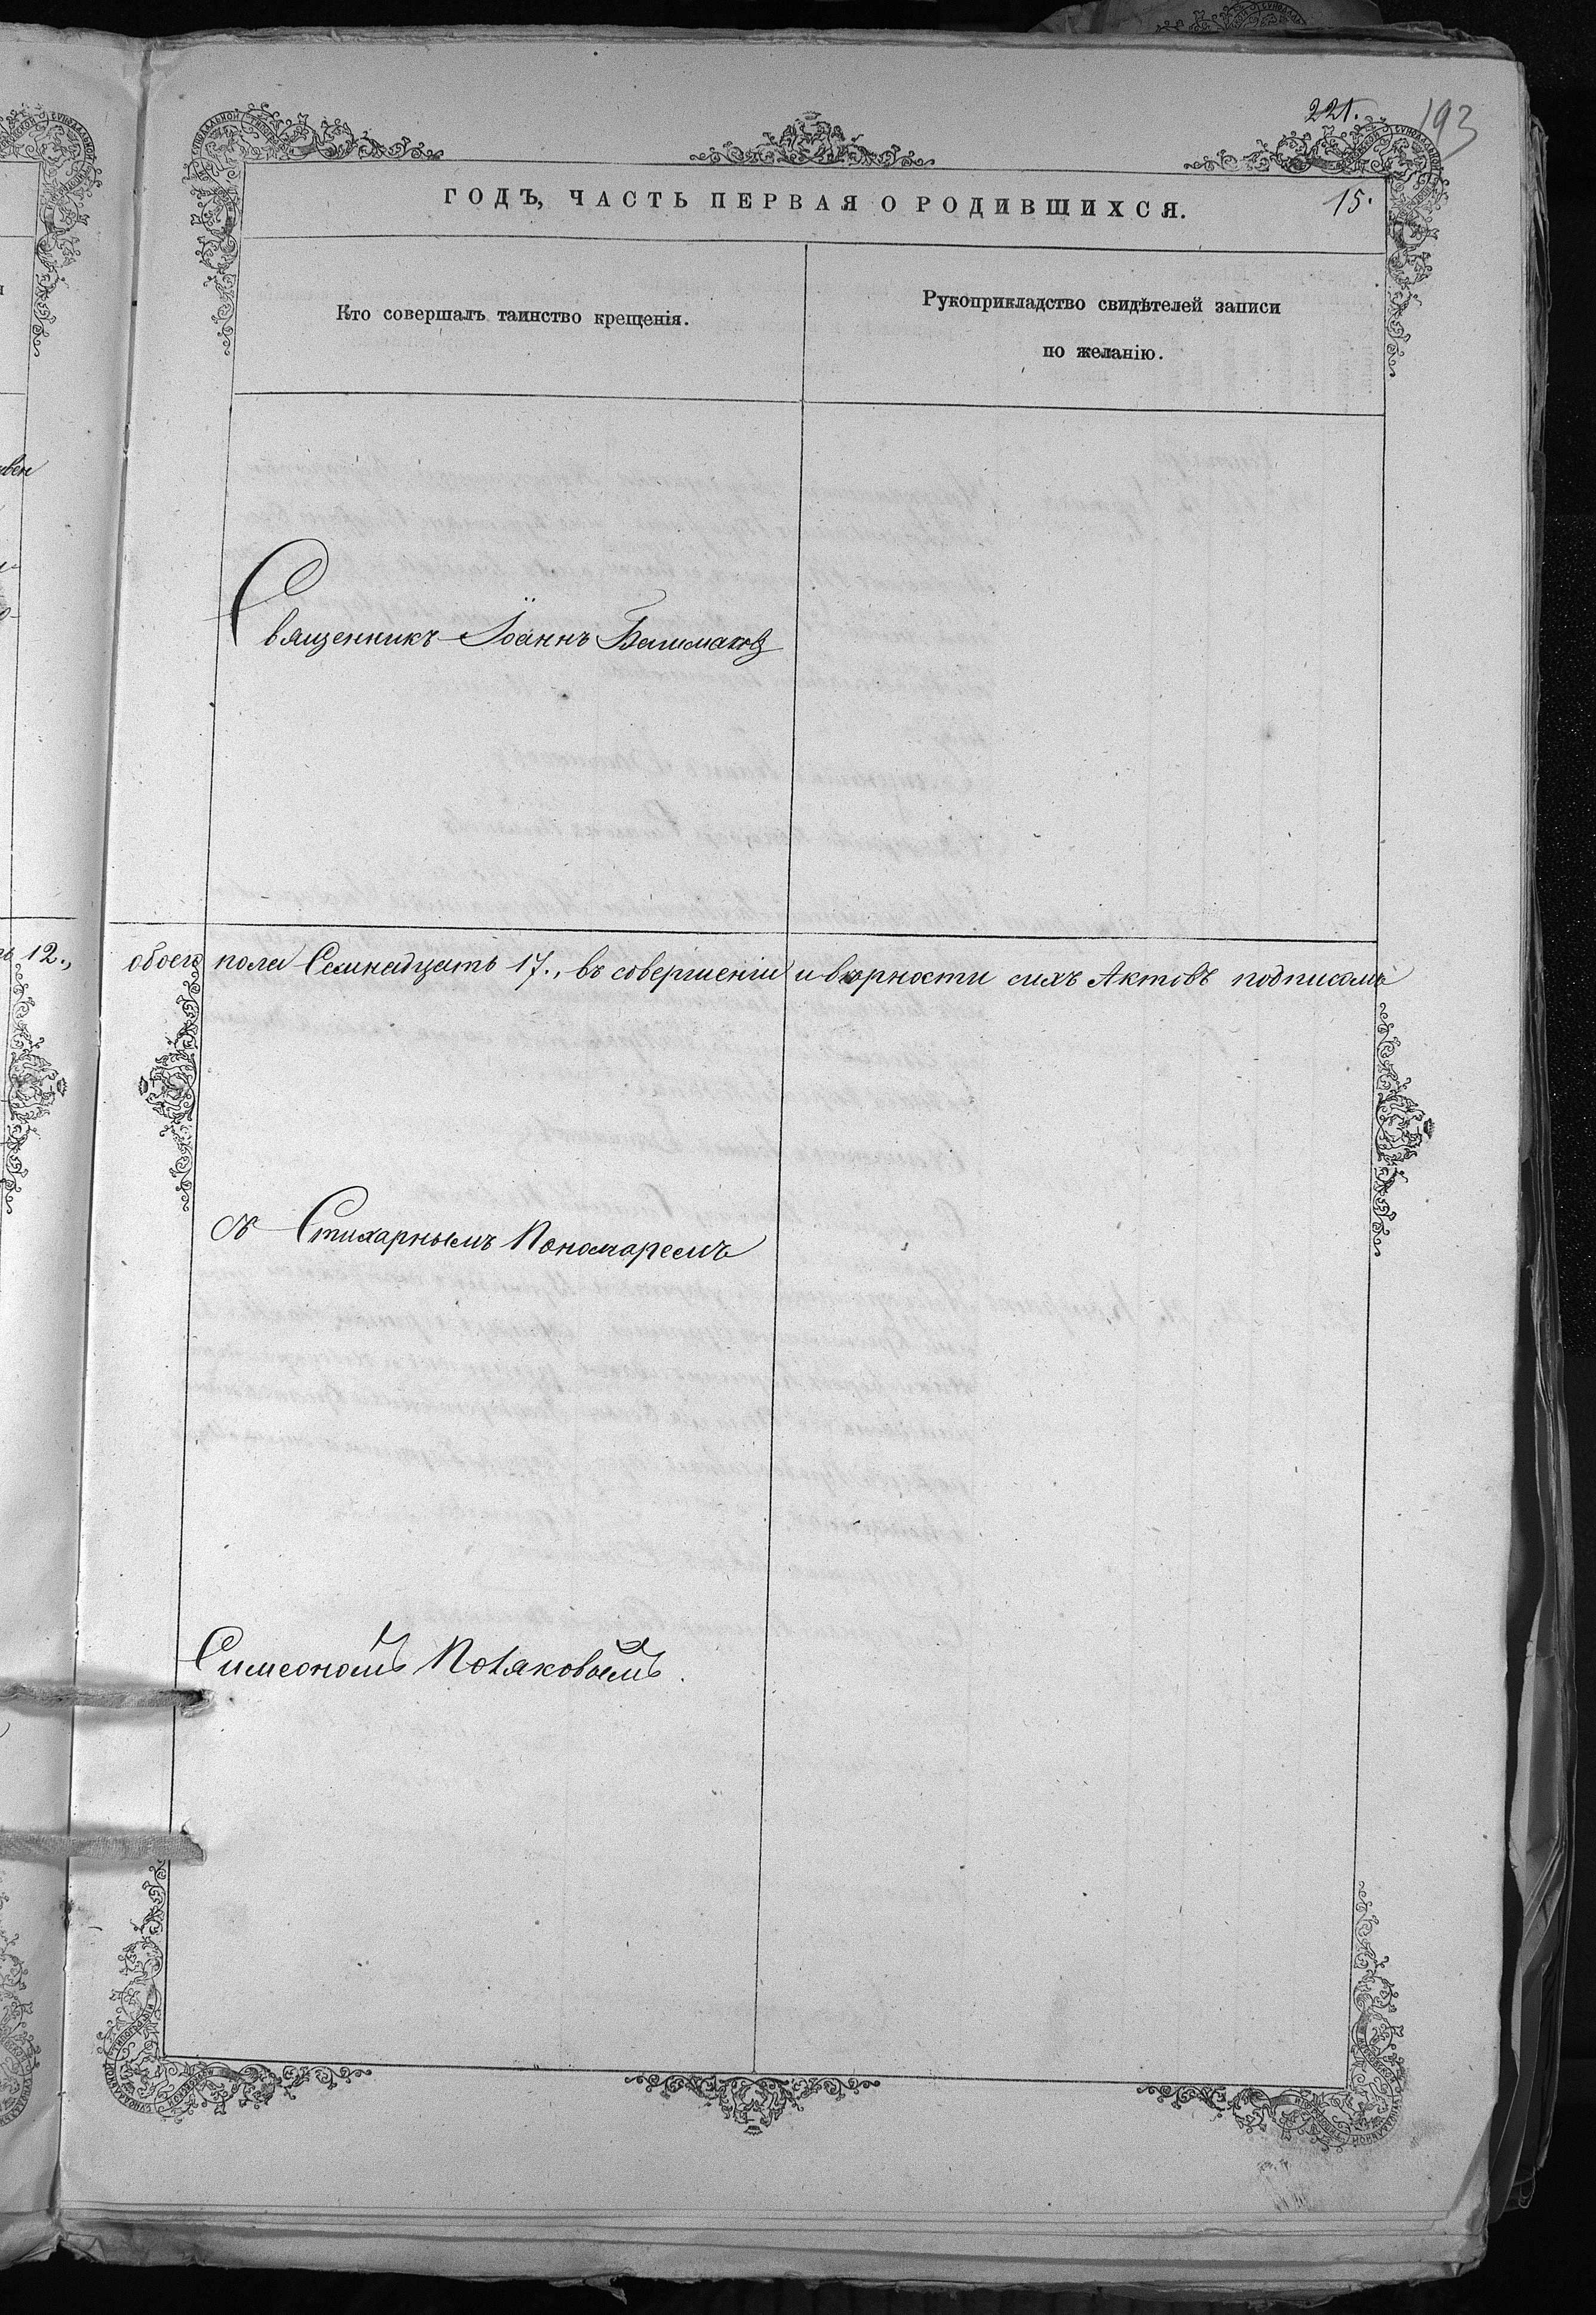 221.
193
ГОДЪ, ЧАСТЬ ПЕРВАЯ О РОДИВШИХСЯ.
15.
Кто совершалъ таинство крещенія.
Рукоприкладство свидѣтелей записи
по желанію.
Священникъ Іоаннъ Башмаковъ
12., обоего пола Семнадцать 17., въ совершеніи и вѣрности сихъ Актовъ подписомъ
съ Стихарнымъ Пономаремъ
Симеономъ Поляковымъ.